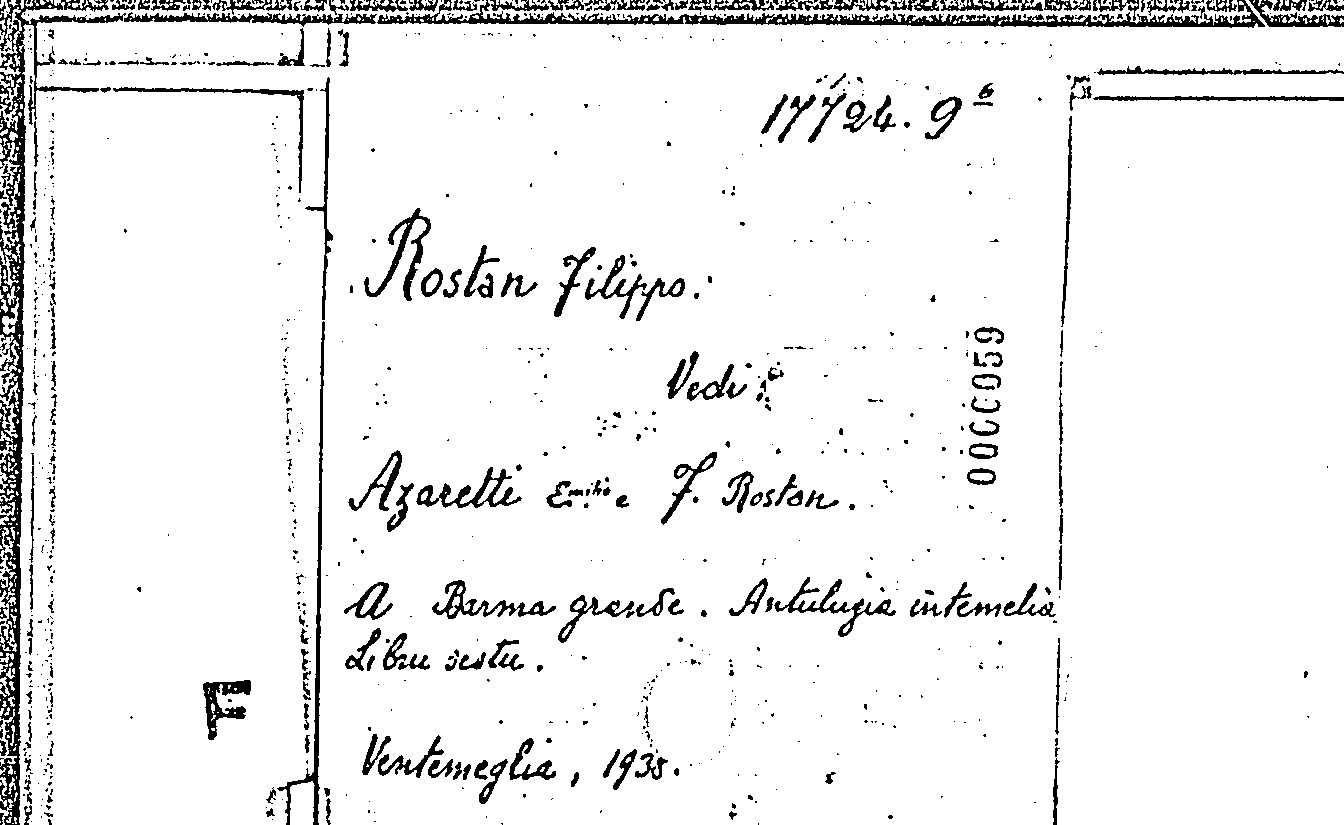 17724. 9 6
Rostan Filippo.
Vedi:
Azaretti Emilio e F. Rostan.
A Barma grande. Antulugia intemelia
Libru sestu.
Ventemeglia, 1938.
0000059
F